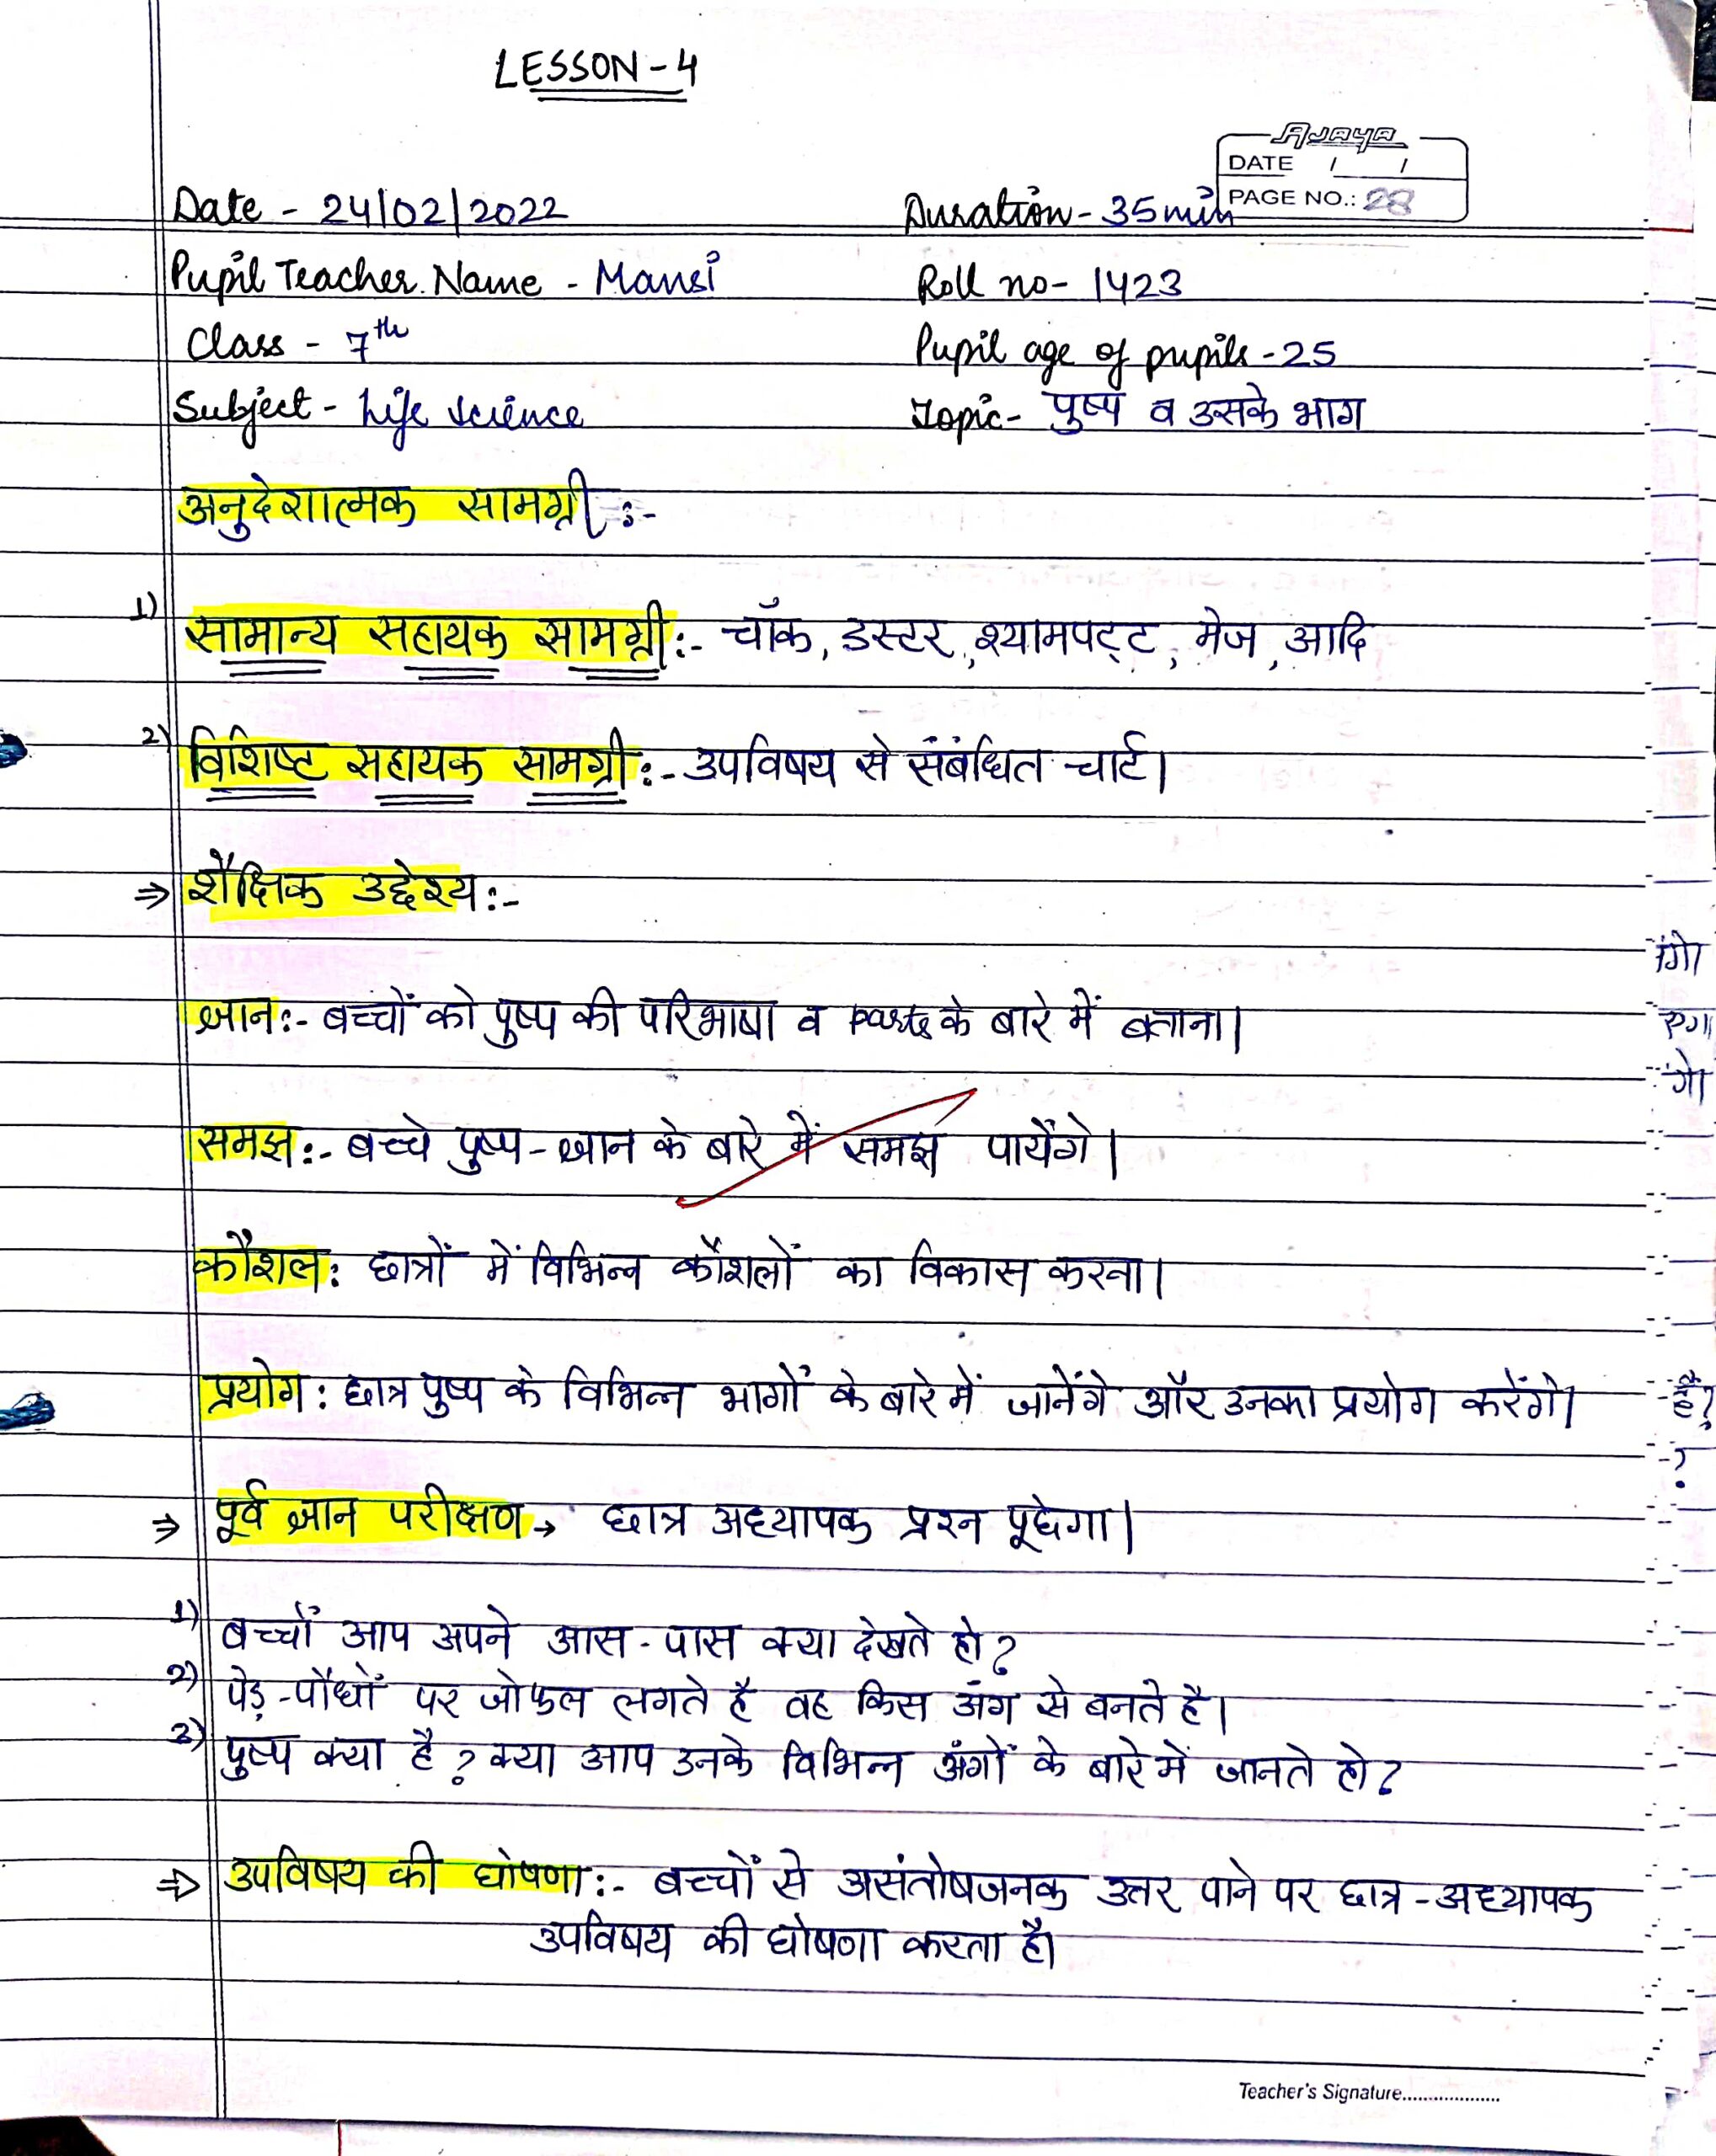 LESSON-4
Ajaya
DATE / /
PAGE NO.: 28
Date - 24/02/2022 Duration - 35 min
Pupil Teacher Name - Mansi Roll no - 1423
Class - 7th Pupil age of pupils - 25
Subject - Life science Topic - पुष्प व उसके भाग
अनुदेशात्मक सामग्री :-
1) सामान्य सहायक सामग्री :- चॉक, डस्टर, श्यामपट्ट, मेज, आदि
2) विशिष्ट सहायक सामग्री :- उपविषय से संबंधित चार्ट।
⇒ शैक्षिक उद्देश्य :-
ज्ञान :- बच्चों को पुष्प की परिभाषा व parts के बारे में बताना।
समझ :- बच्चे पुष्प - ज्ञान के बारे में समझ पायेंगे।
कौशल : छात्रों में विभिन्न कौशलों का विकास करना।
प्रयोग : छात्र पुष्प के विभिन्न भागों के बारे में जानेंगे और उनका प्रयोग करेंगे।
⇒ पूर्व ज्ञान परीक्षण → छात्र अध्यापक प्रश्न पूछेगा।
1) बच्चों आप अपने आस-पास क्या देखते हो?
2) पेड़-पौधों पर जो फल लगते है वह किस अंग से बनते है।
3) पुष्प क्या है? क्या आप उनके विभिन्न अंगों के बारे में जानते हो?
⇒ उपविषय की घोषणा :- बच्चों से असंतोषजनक उत्तर पाने पर छात्र - अध्यापक
उपविषय की घोषणा करता है।
Teacher's Signature....................